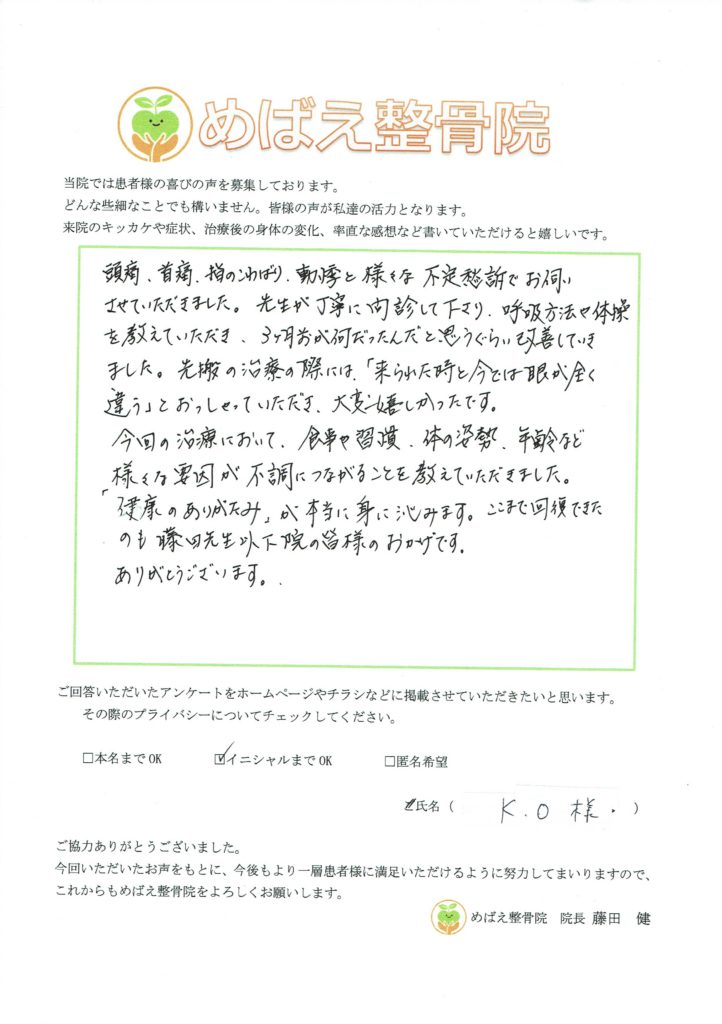 めばえ整骨院
当院では患者様の喜びの声を募集しております。
どんな些細なことでも構いません。皆様の声が私達の活力となります。
来院のキッカケや症状、治療後の身体の変化、率直な感想など書いていただけると嬉しいです。
頭痛、首痛、指のこわばり、動悸と様々な不定愁訴でお伺い
させていただきました。先生が丁寧に問診して下さり、呼吸方法や体操
を教えていただき、3ヶ月前が何だったんだと思うぐらい改善していき
ました。先般の治療の際には、「来られた時と今では眼が全く
違う」とおっしゃっていただき、大変嬉しかったです。
今回の治療において、食事や習慣、体の姿勢、年齢など
様々な要因が不調につながることを教えていただきました。
「健康のありがたみ」が本当に身に沁みます。ここまで回復できた
のも藤田先生以下院の皆様のおかげです。
ありがとうございます。
ご回答いただいたアンケートをホームページやチラシなどに掲載させていただきたいと思います。
その際のプライバシーについてチェックしてください。
□本名までOK ☑イニシャルまでOK □匿名希望
氏名（ K.O 様 ）
ご協力ありがとうございました。
今回いただいたお声をもとに、今後もより一層患者様に満足いただけるように努力してまいりますので、
これからもめばえ整骨院をよろしくお願いします。
めばえ整骨院 院長 藤田 健